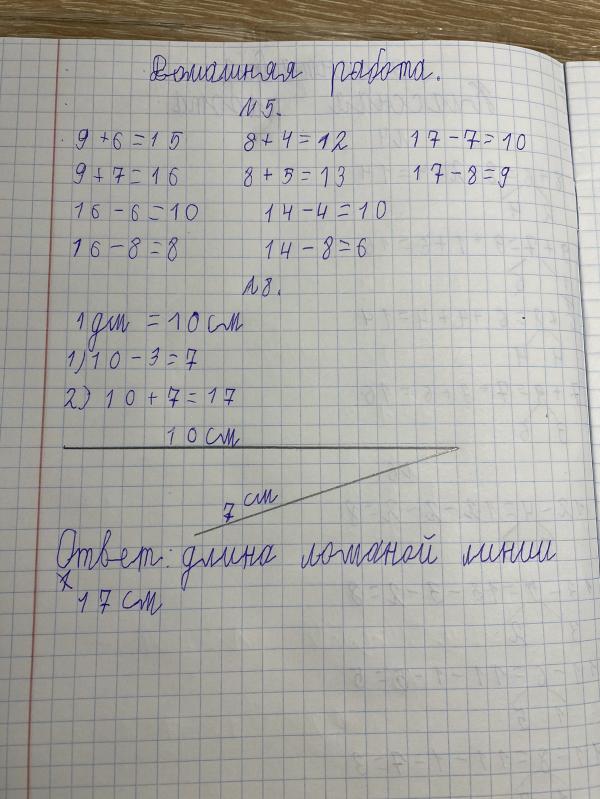 Домашняя работа.
№5.
9+6=15 8+4=12 17-7=10
9+7=16 8+5=13 17-8=9
16-6=10 14-4=10
16-8=8 14-8=6
№8.
1дм =10см
1)10-3=7
2)10+7=17
10см
7см
Ответ: длина ломаной линии
17см